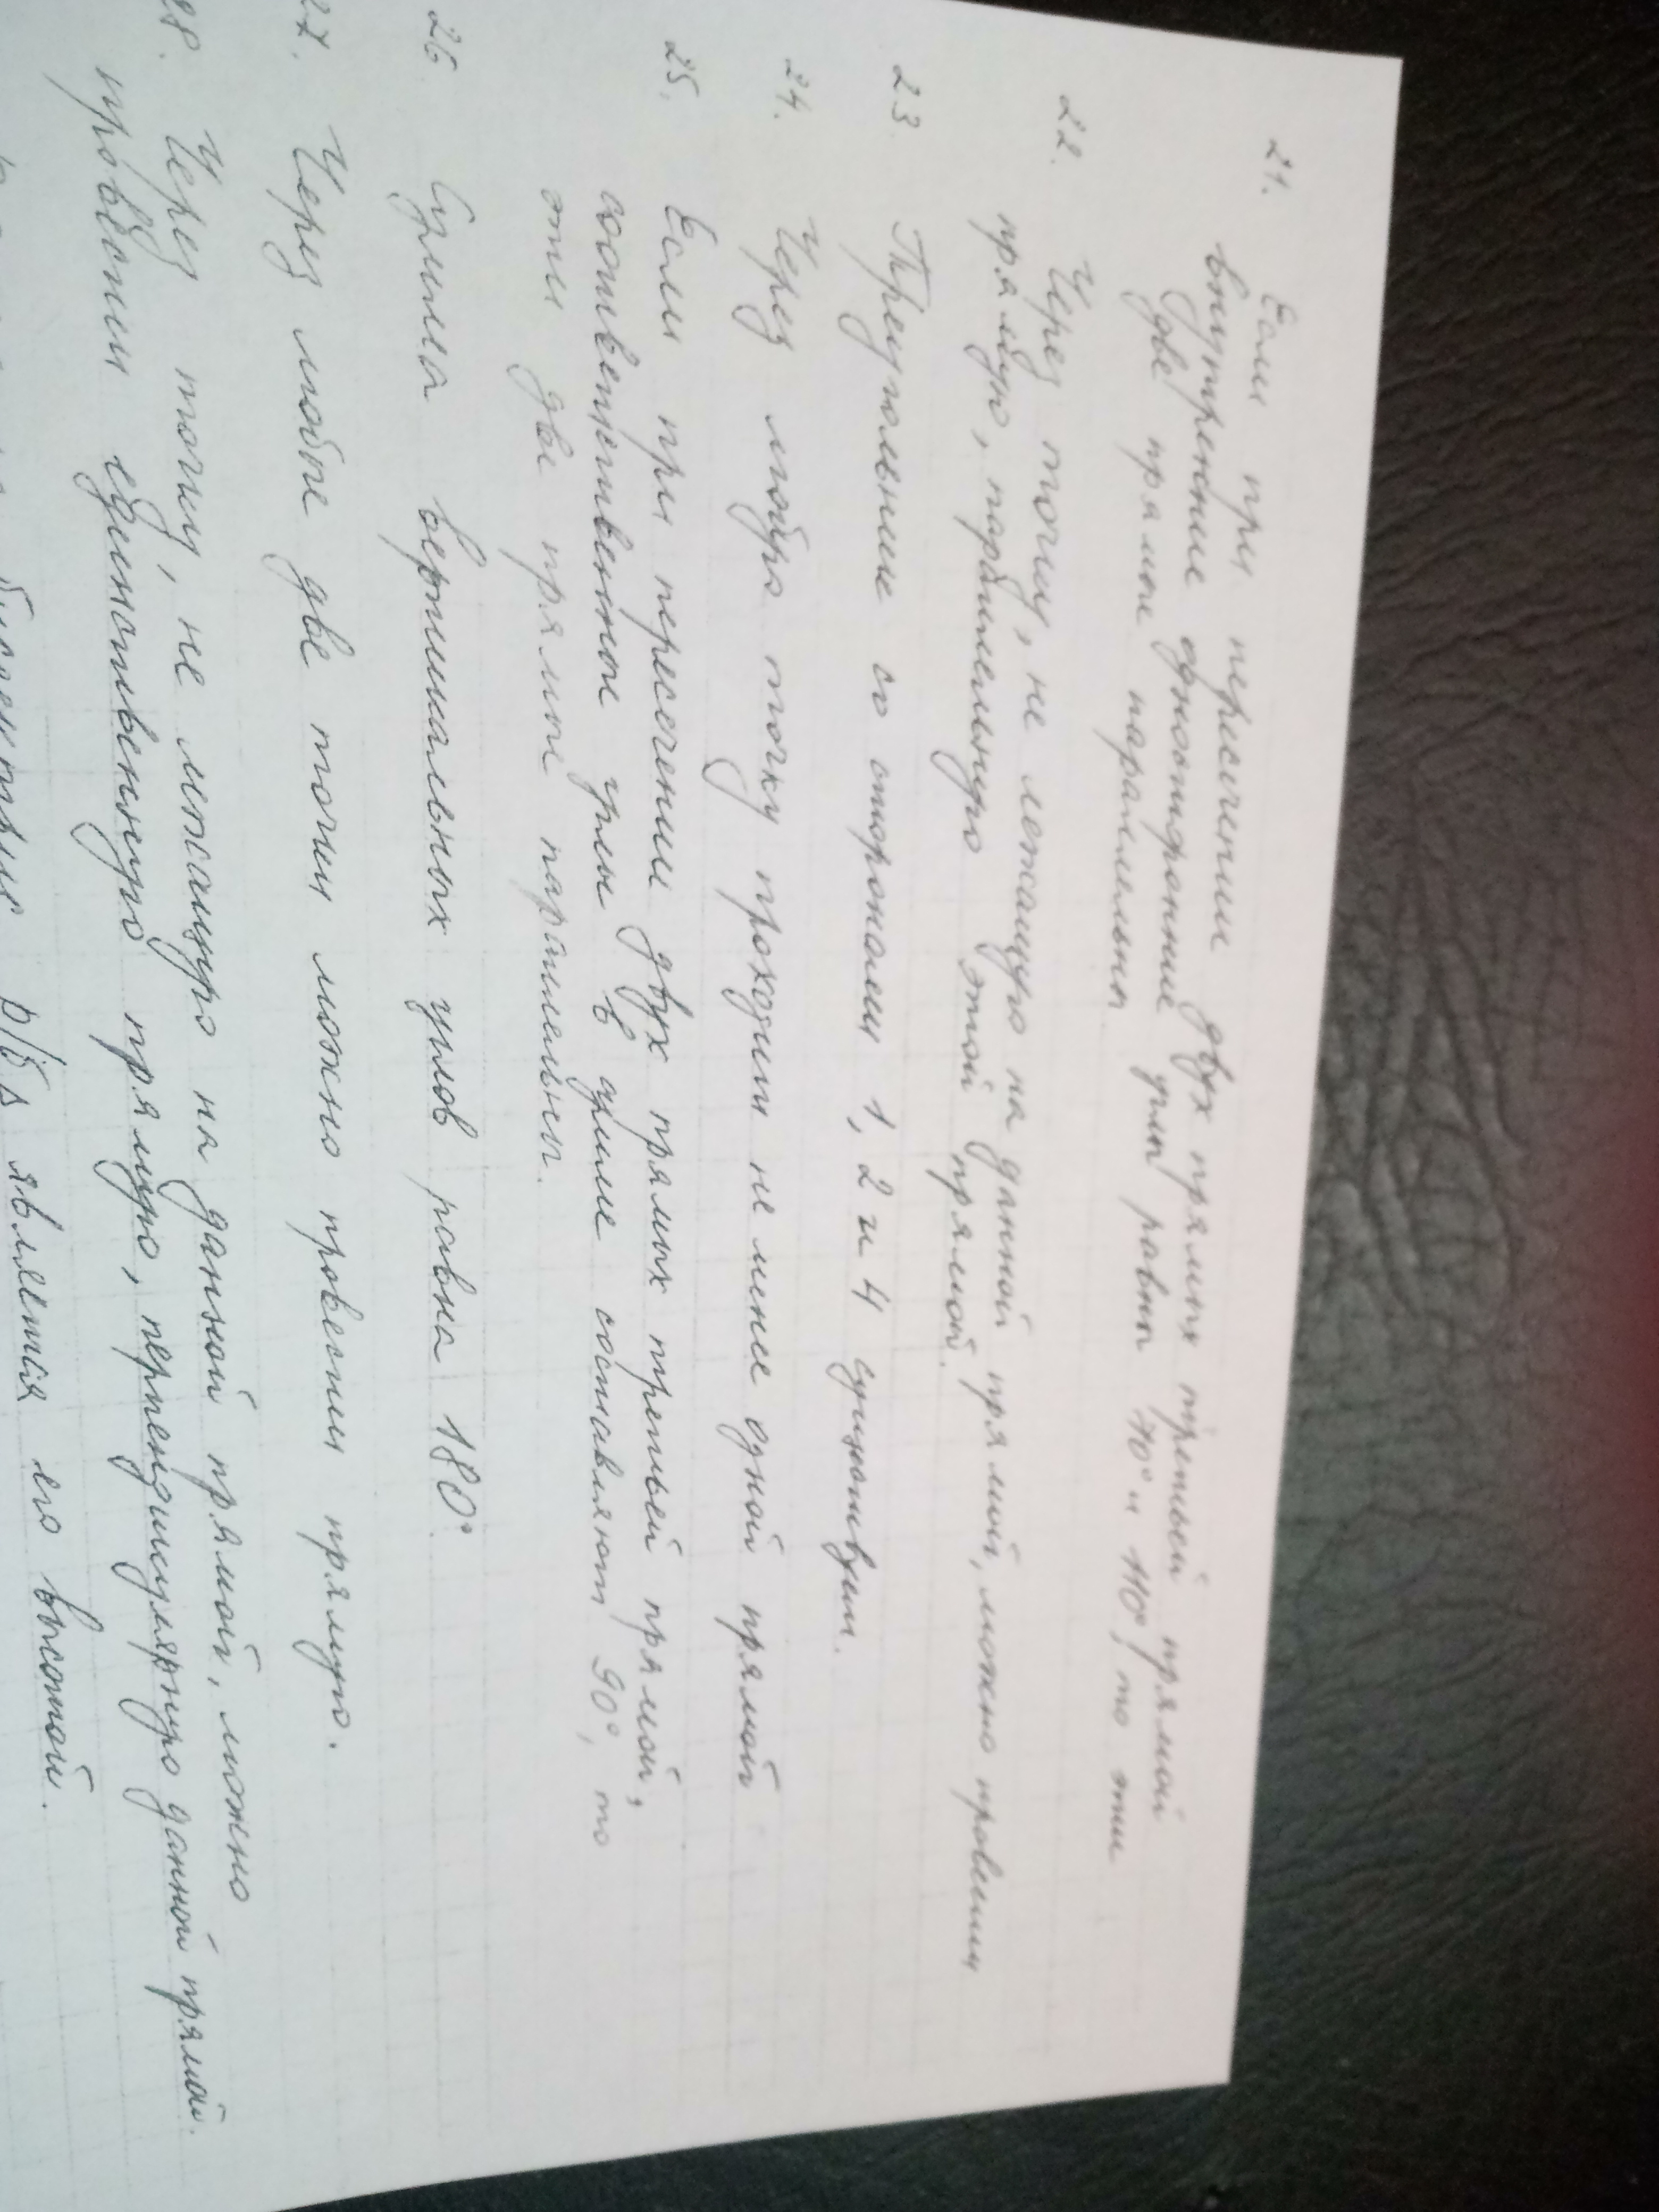 21. Если при пересечении двух прямых третьей прямой
внутренние односторонние углы равны 70° и 110°, то эти
две прямые параллельны
22. Через точку, не лежащую на данной прямой, можно провести
прямую, параллельную этой прямой.
23. Треугольник со сторонами 1, 2 и 4 существует.
24. Через любую точку проходит не менее одной прямой
25. Если при пересечении двух прямых третьей прямой,
соответственные углы в сумме составляют 90°, то
эти две прямые параллельны.
26. Сумма вертикальных углов равна 180°.
27. Через любые две точки можно провести прямую.
28. Через точку, не лежащую на данной прямой, можно
провести единственную прямую, перпендикулярную данной прямой.
биссектриса р/б Δ является его высотой.